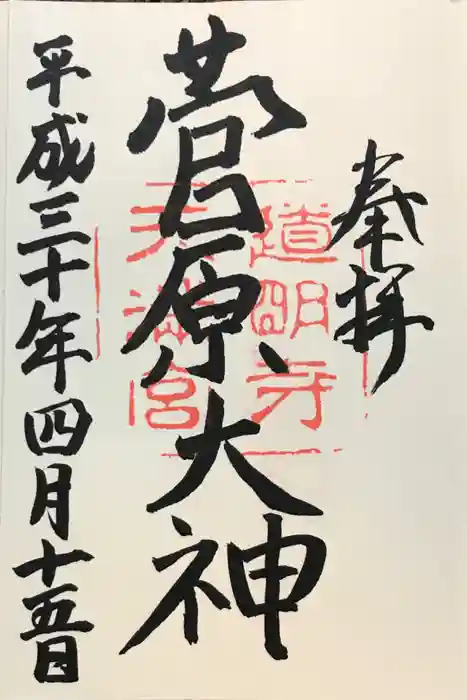 奉拝
菅原大神
道明寺
天満宮
平成三十年四月十五日